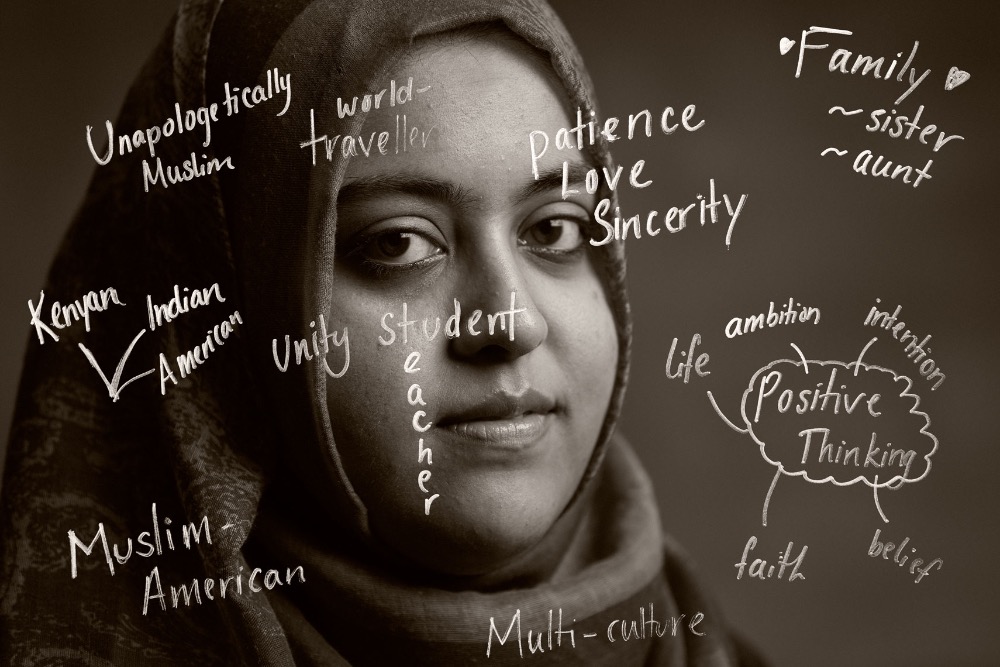 Unapologetically
Muslim
world-
traveller
Patience
Love
Sincerity
Family
~ sister
~ aunt
Kenyan
Indian
American
Unity
student
teacher
life
ambition
intention
Positive
Thinking
faith
belief
Muslim-
American
Multi-culture